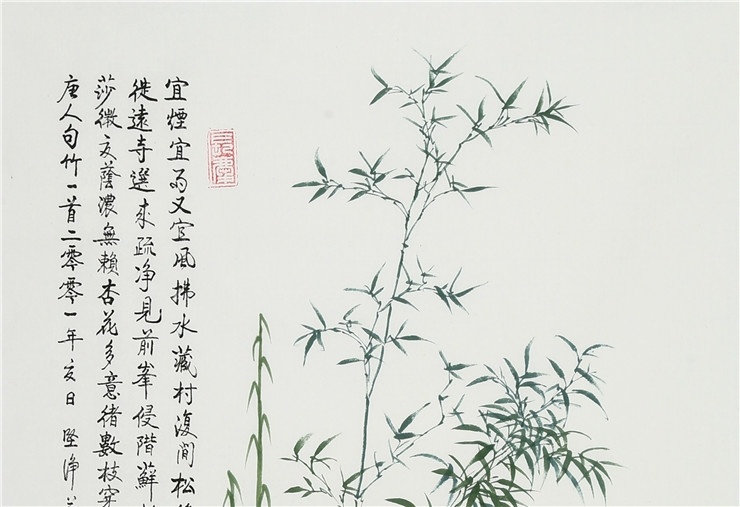 宜煙宜雨又宜風拂水藏村復間松
從遠寺選來疏净見前峯侵階蘚
莎微夏蔭濃無賴杏花多意緒數枝穿
唐人句竹一首二零零一年夏日堅净